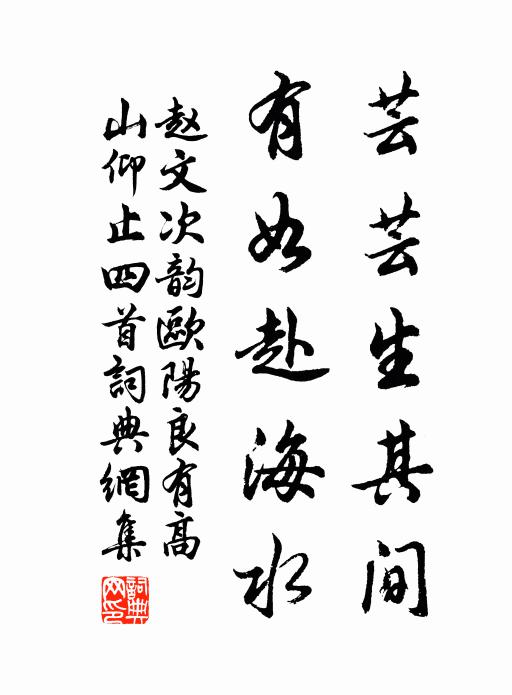 芸芸生其间
有如赴海水
赵文次韵歐陽良有高
山仰止四首詞典網集
詞典網印